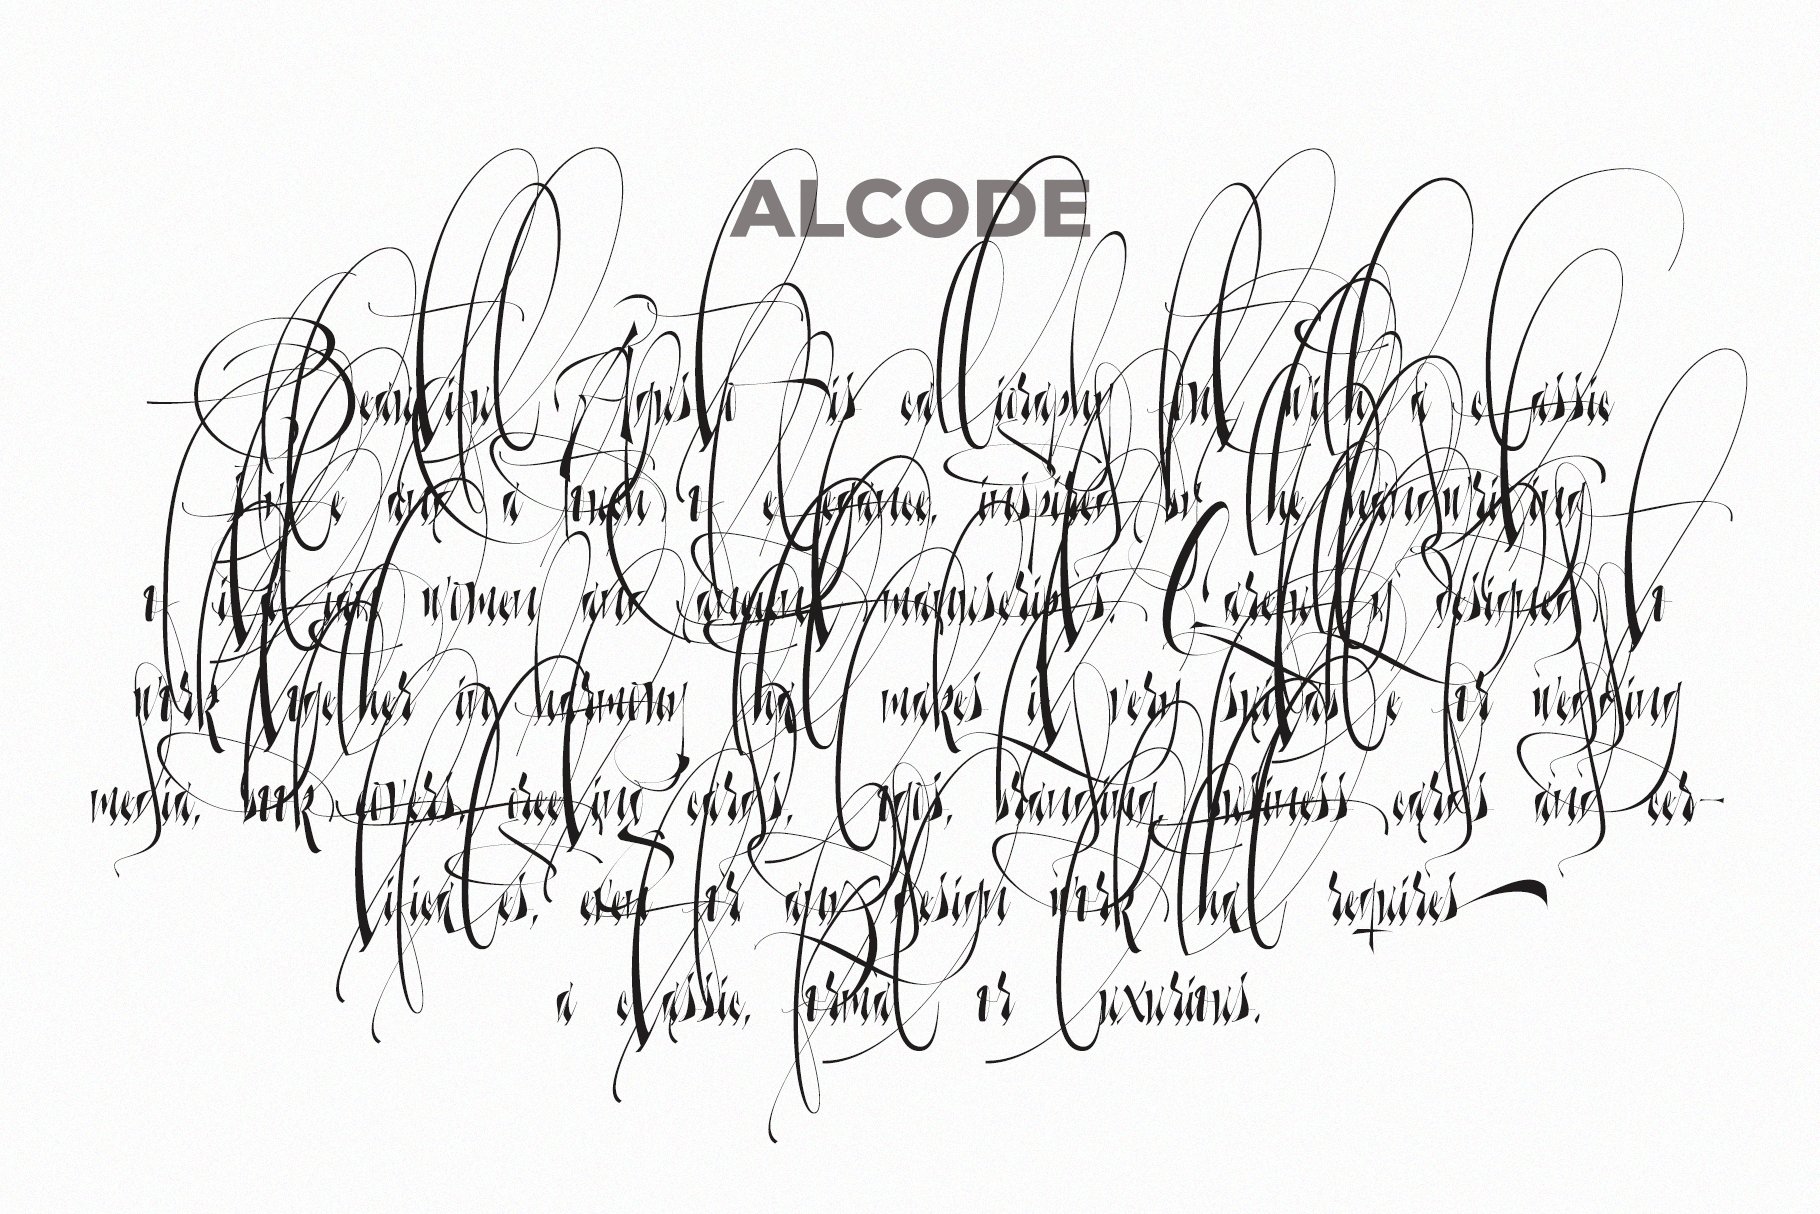 ALCODE
Beautiful Agusto is calligraphy font with a classic
style and a touch of elegance, inspired by the handwriting
of Italian women and ancient manuscripts. Carefully designed to
work together in harmony that makes it very suitable for wedding
media, book covers, greeting cards, logos, branding, business cards and cer-
tificates, even for any design work that requires
a classic, formal or luxurious.